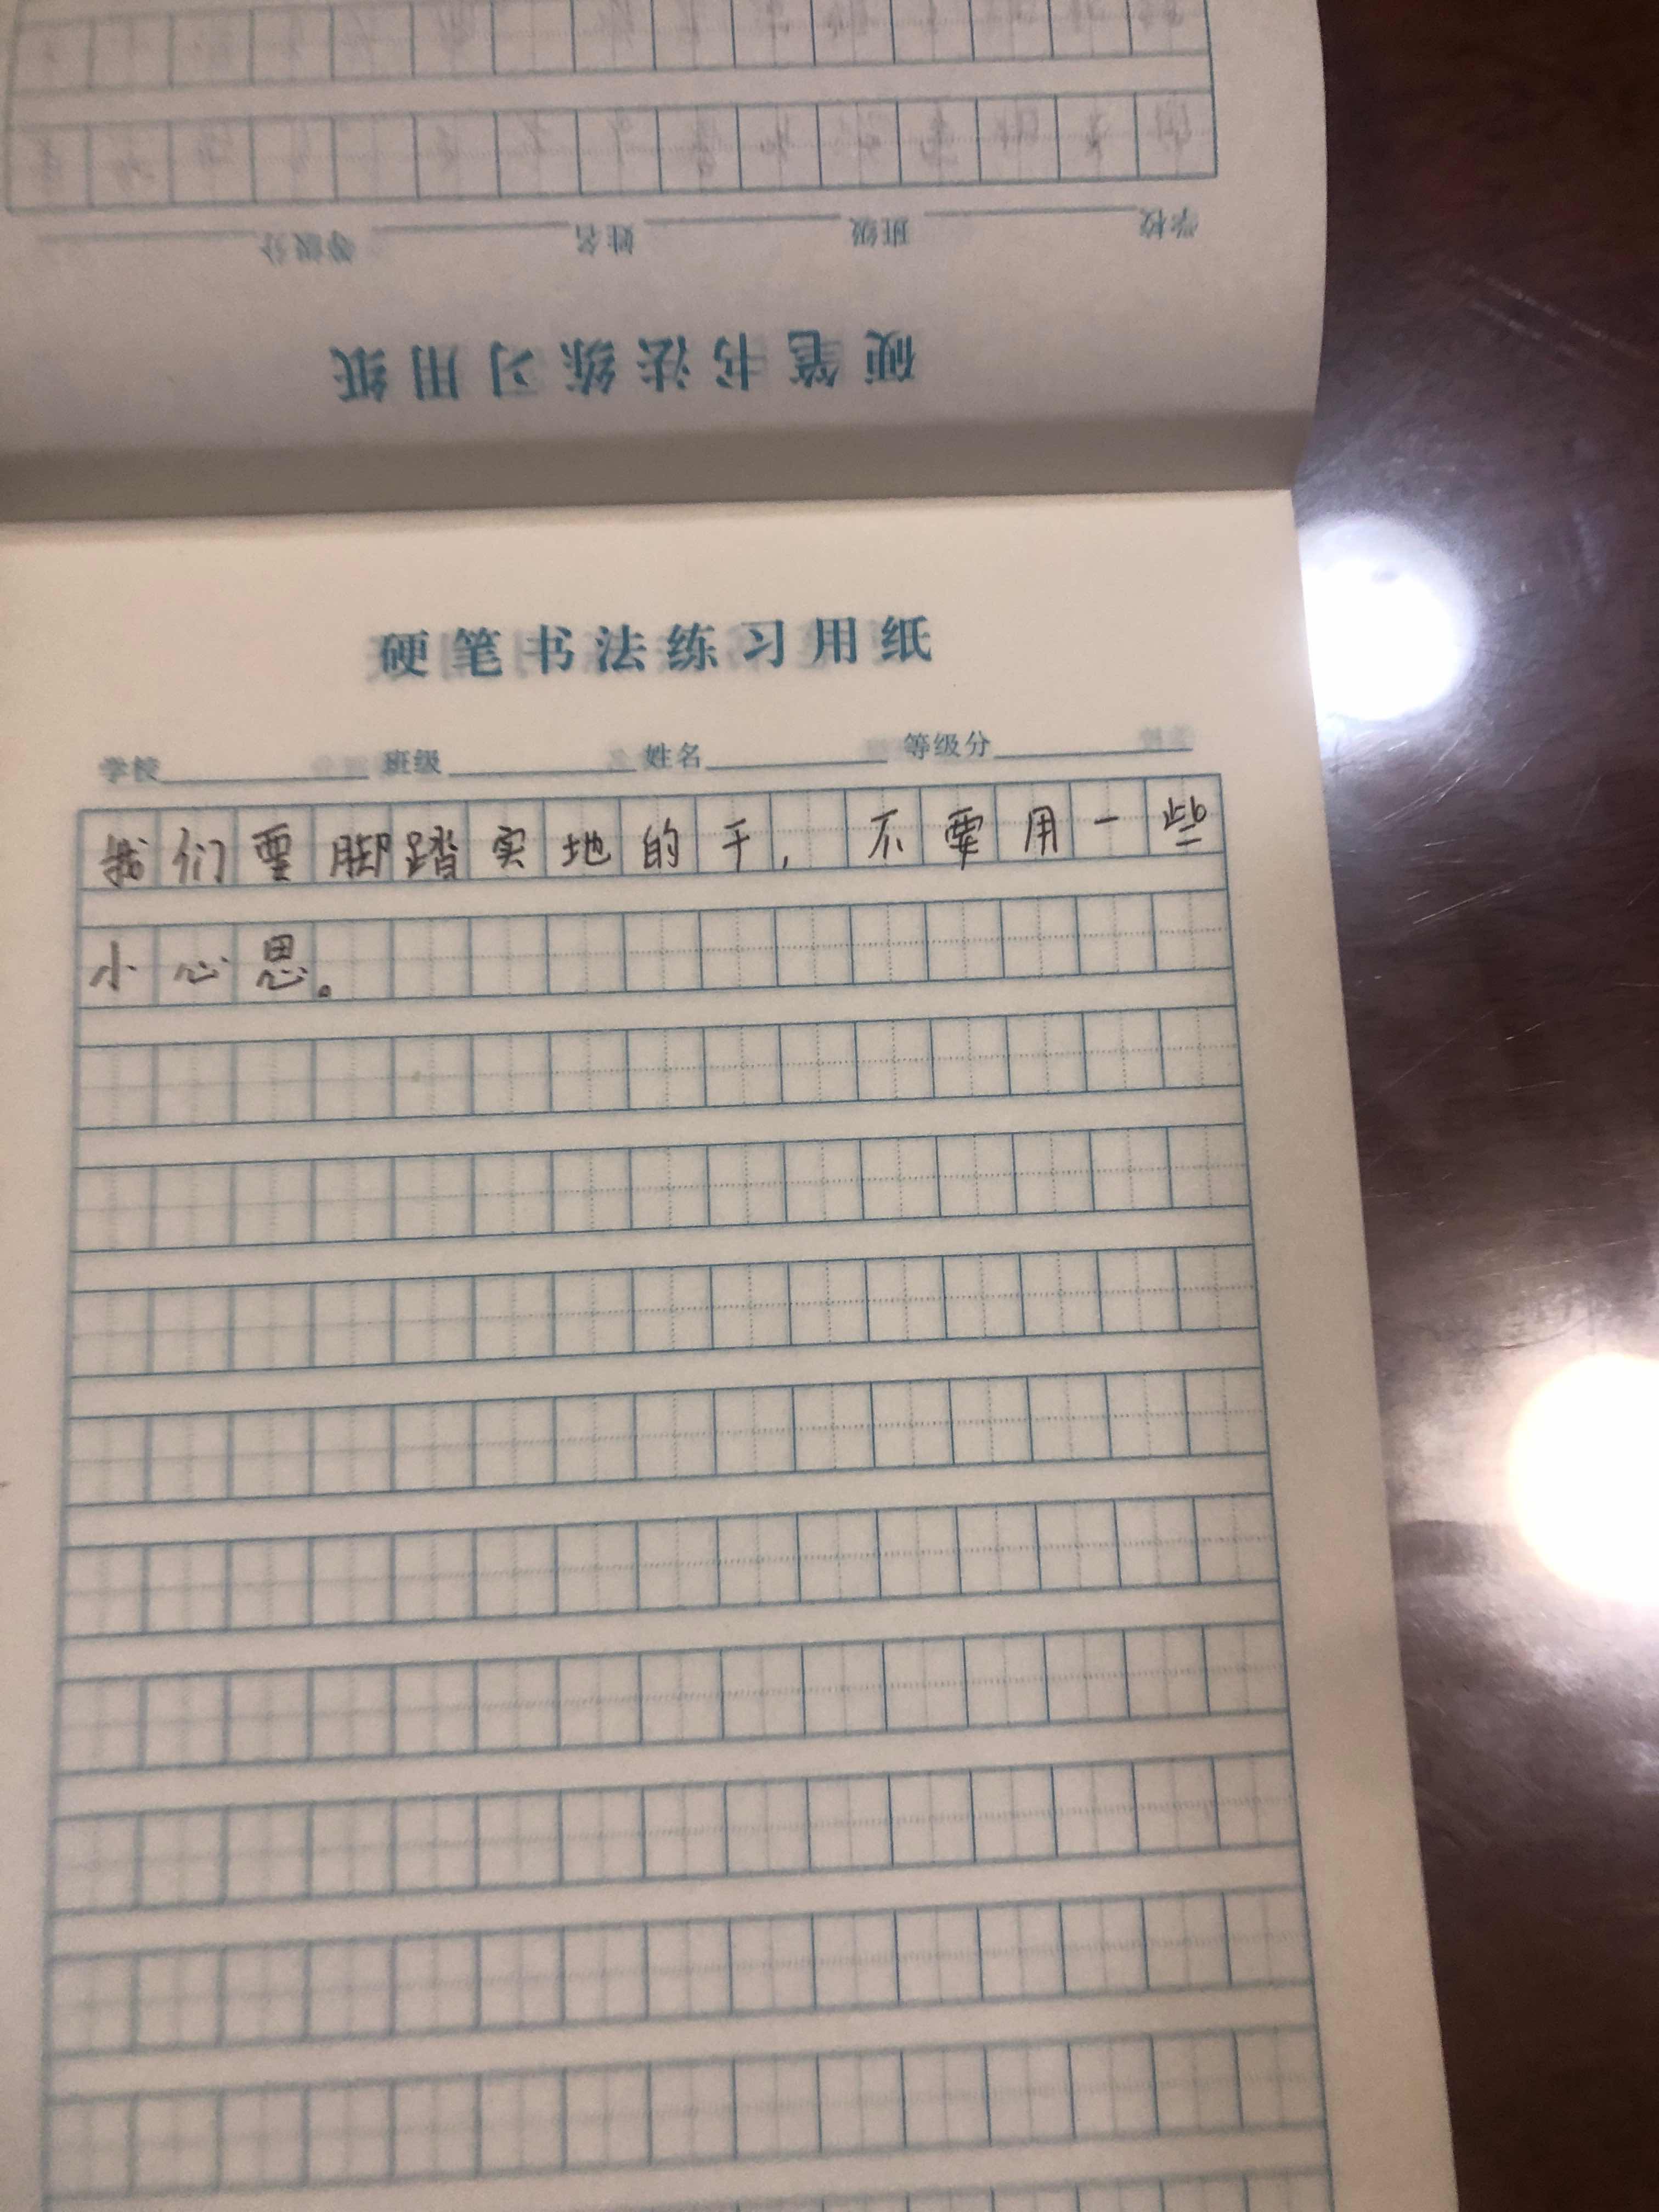 学校 班级 姓名 等级分
硬笔书法练习用纸
硬笔书法练习用纸
学校 班级 姓名 等级分
我们要脚踏实地的干，不要用一些
小心思。